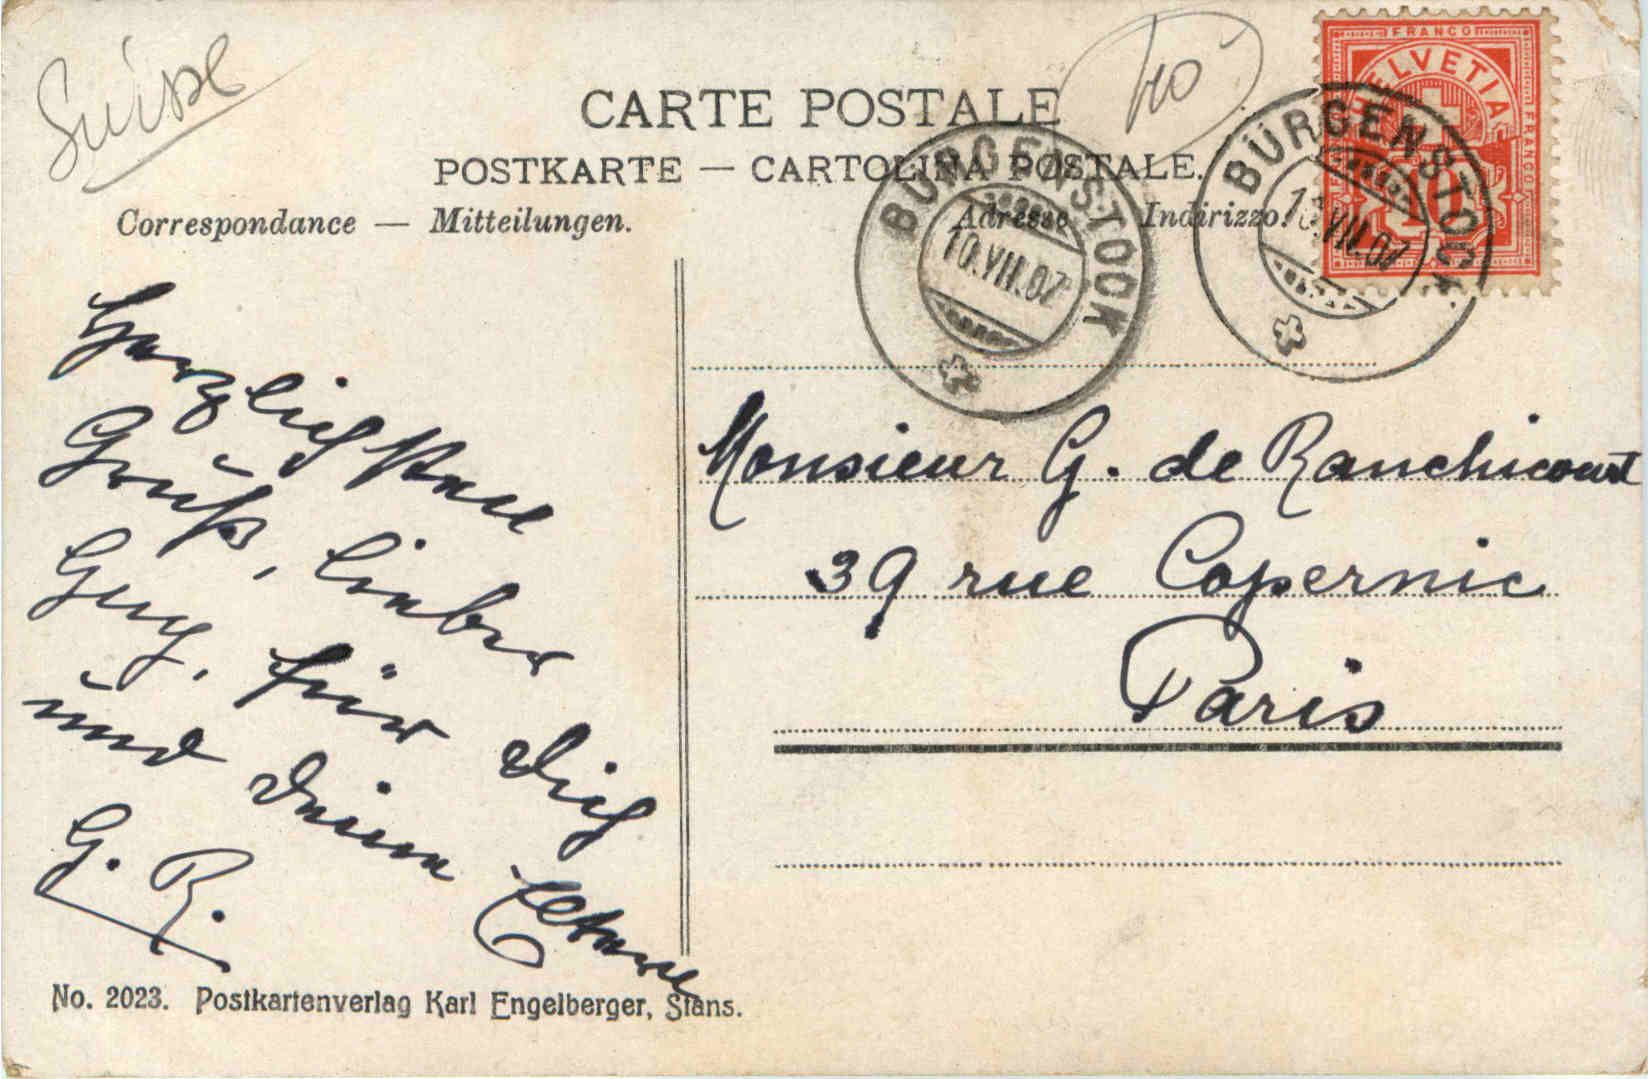 Suisse
40
FRANCO
HELVETIA
FRANCO
10
CARTE POSTALE
POSTKARTE — CARTOLINA POSTALE.
Correspondance — Mitteilungen.
Adresse — Indirizzo.
BÜRGENSTOCK
10.VIII.07
BÜRGENSTOCK
10.VIII.07
Herzlichsten
Gruß, lieber
Guy, für Dich
und Deine Eltern
G. R.
Monsieur G. de Ranchicourt
39 rue Copernic
Paris
No. 2023. Postkartenverlag Karl Engelberger, Stans.